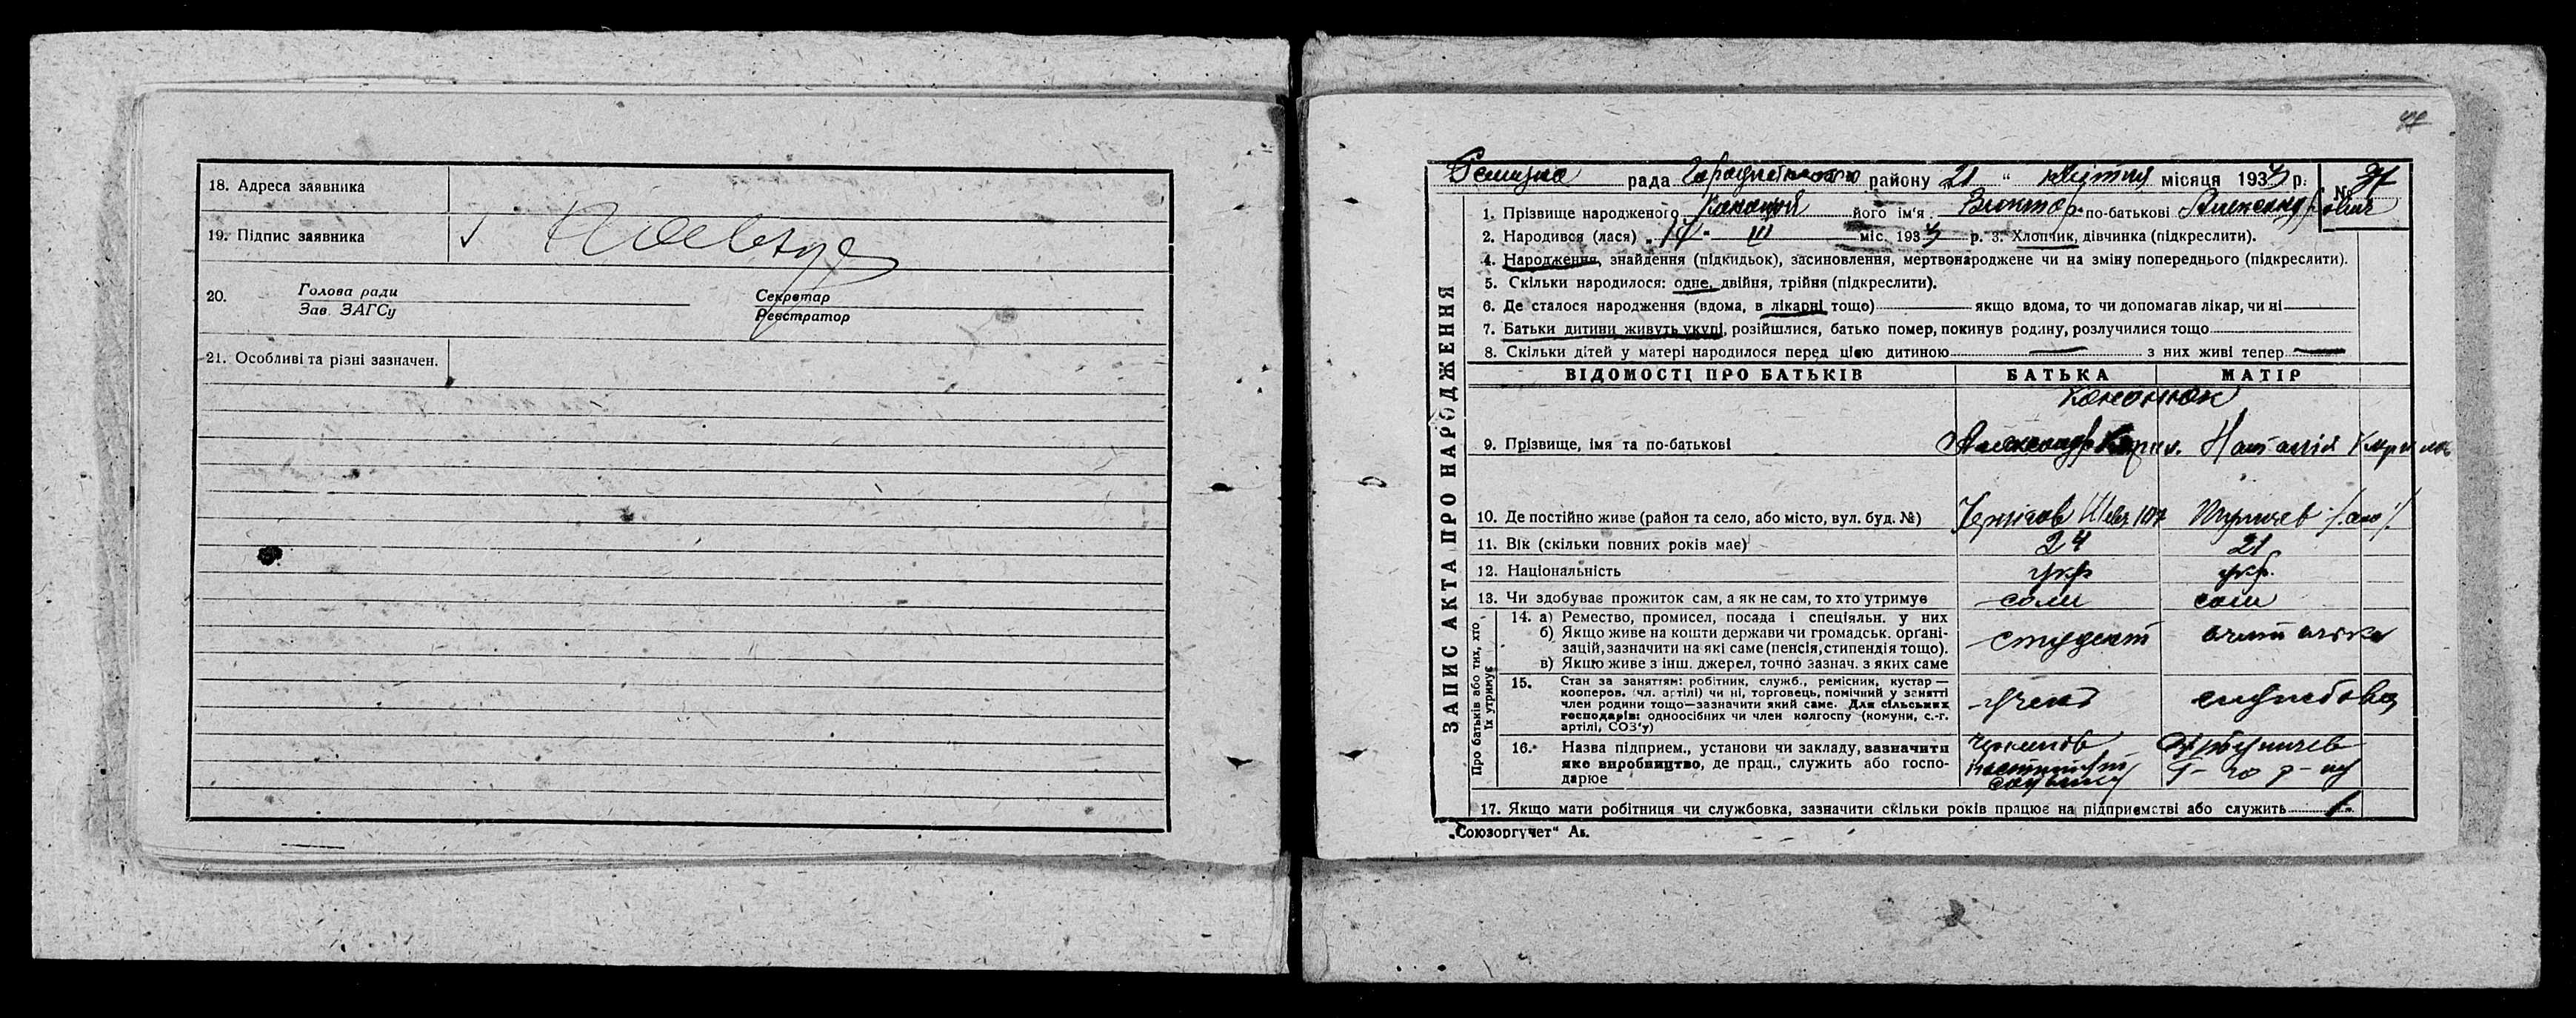 18. Адреса заявника
19. Підпис заявника
20. Голова ради
Зав. ЗАГСу
Секретар
Реєстратор
21. Особливі та різні зазначен.
рада району 21 " квітня місяця 193 р.
№ 37
1. Прізвище народженого його ім'я Виктор по-батькові Александрович
2. Народився (лася) " III міс. 193 р. 3. Хлопчик, дівчинка (підкреслити).
4. Народження, знайдення (підкидьок), засиновлення, мертвонароджене чи на зміну попереднього (підкреслити).
5. Скільки народилося: одне, двійня, трійня (підкреслити).
6. Де сталося народження (вдома, в лікарні тощо) якщо вдома, то чи допомагав лікар, чи ні
7. Батьки дитини живуть укупі, розійшлися, батько помер, покинув родину, розлучилися тощо
8. Скільки дітей у матері народилося перед цією дитиною — з них живі тепер —
ЗАПИС АКТА ПРО НАРОДЖЕННЯ
ВІДОМОСТІ ПРО БАТЬКІВ БАТЬКА МАТІР
Кононюк
9. Прізвище, імя та по-батькові Александр Наталія
10. Де постійно живе (район та село, або місто, вул. буд. №) Чернігов Шевч 107
11. Вік (скільки повних років має) 24 21
12. Національність укр укр.
13. Чи здобуває прожиток сам, а як не сам, то хто утримує сами сами
Про батьків або тих, хто їх утримує
14. а) Ремество, промисел, посада і спеціяльн. у них
б) Якщо живе на кошти держави чи громадськ. орґані-
зацій, зазначити на які саме (пенсія, стипендія тощо).
в) Якщо живе з інш. джерел, точно зазнач. з яких саме
студент
15. Стан за заняттям: робітник, служб., ремісник, кустар —
кооперов. (чл. артілі) чи ні, торговець, помічний у занятті
член родини тощо—зазначити який саме. Для сільських
господарів: одноосібних чи член колгоспу (комуни, с.-г.
артілі, СОЗ'у)
учень службовец
16. Назва підприєм., установи чи закладу, зазначити
яке виробництво, де прац., служить або госпо-
дарює
институт
17. Якщо мати робітниця чи службовка, зазначити скільки років працює на підприємстві або служить 1
„Союзоргучет" Ак.